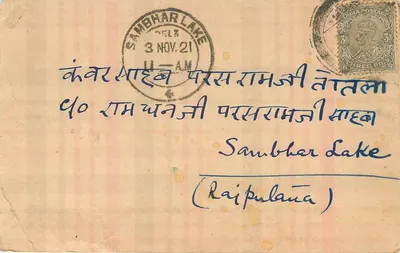 SAMBHAR LAKE
3 NOV. 21
11 - A.M
कंवर साहब परसरामजी तोतला
c/o रामधनजी परसरामजी साहब
Sambhar Lake
(Rajputana)